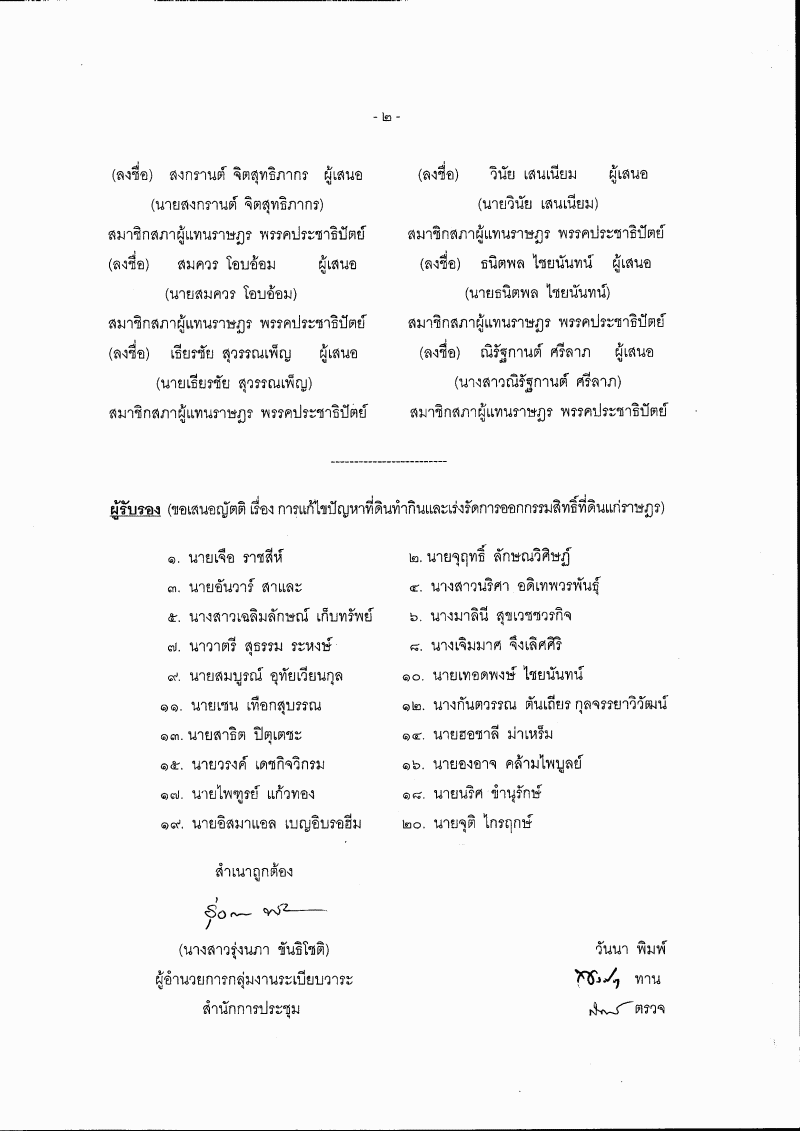 - ๒ -
(ลงชื่อ) สงกรานต์ จิตสุทธิภากร ผู้เสนอ (ลงชื่อ) วินัย เสนเนียม ผู้เสนอ
(นายสงกรานต์ จิตสุทธิภากร) (นายวินัย เสนเนียม)
สมาชิกสภาผู้แทนราษฎร พรรคประชาธิปัตย์ สมาชิกสภาผู้แทนราษฎร พรรคประชาธิปัตย์
(ลงชื่อ) สมควร โอบอ้อม ผู้เสนอ (ลงชื่อ) ธนิตพล ไชยนันทน์ ผู้เสนอ
(นายสมควร โอบอ้อม) (นายธนิตพล ไชยนันทน์)
สมาชิกสภาผู้แทนราษฎร พรรคประชาธิปัตย์ สมาชิกสภาผู้แทนราษฎร พรรคประชาธิปัตย์
(ลงชื่อ) เธียรชัย สุวรรณเพ็ญ ผู้เสนอ (ลงชื่อ) ณิรัฐกานต์ ศรีลาภ ผู้เสนอ
(นายเธียรชัย สุวรรณเพ็ญ) (นางสาวณิรัฐกานต์ ศรีลาภ)
สมาชิกสภาผู้แทนราษฎร พรรคประชาธิปัตย์ สมาชิกสภาผู้แทนราษฎร พรรคประชาธิปัตย์
-------------------------
ผู้รับรอง (ขอเสนอญัตติ เรื่อง การแก้ไขปัญหาที่ดินทำกินและเร่งรัดการออกกรรมสิทธิ์ที่ดินแก่ราษฎร)
๑. นายเจือ ราชสีห์ ๒. นายจุฤทธิ์ ลักษณวิศิษฏ์
๓. นายอันวาร์ สาและ ๔. นางสาวนริศา อดิเทพวรพันธุ์
๕. นางสาวเฉลิมลักษณ์ เก็บทรัพย์ ๖. นางมาลินี สุขเวชชวรกิจ
๗. นาวาตรี สุธรรม ระหงษ์ ๘. นางเจิมมาศ จึงเลิศศิริ
๙. นายสมบูรณ์ อุทัยเวียนกุล ๑๐. นายเทอดพงษ์ ไชยนันทน์
๑๑. นายเชน เทือกสุบรรณ ๑๒. นางกันตวรรณ ตันเถียร กุลจรรยาวิวัฒน์
๑๓. นายสาธิต ปิตุเตชะ ๑๔. นายฮอชาลี ม่าเหร็ม
๑๕. นายวรงค์ เดชกิจวิกรม ๑๖. นายองอาจ คล้ามไพบูลย์
๑๗. นายไพฑูรย์ แก้วทอง ๑๘. นายนริศ ขำนุรักษ์
๑๙. นายอิสมาแอล เบญอิบรอฮีม ๒๐. นายจุติ ไกรฤกษ์
สำเนาถูกต้อง
(นางสาวรุ่งนภา ขันธิโชติ) วันนา พิมพ์
ผู้อำนวยการกลุ่มงานระเบียบวาระ ทาน
สำนักการประชุม ตรวจ